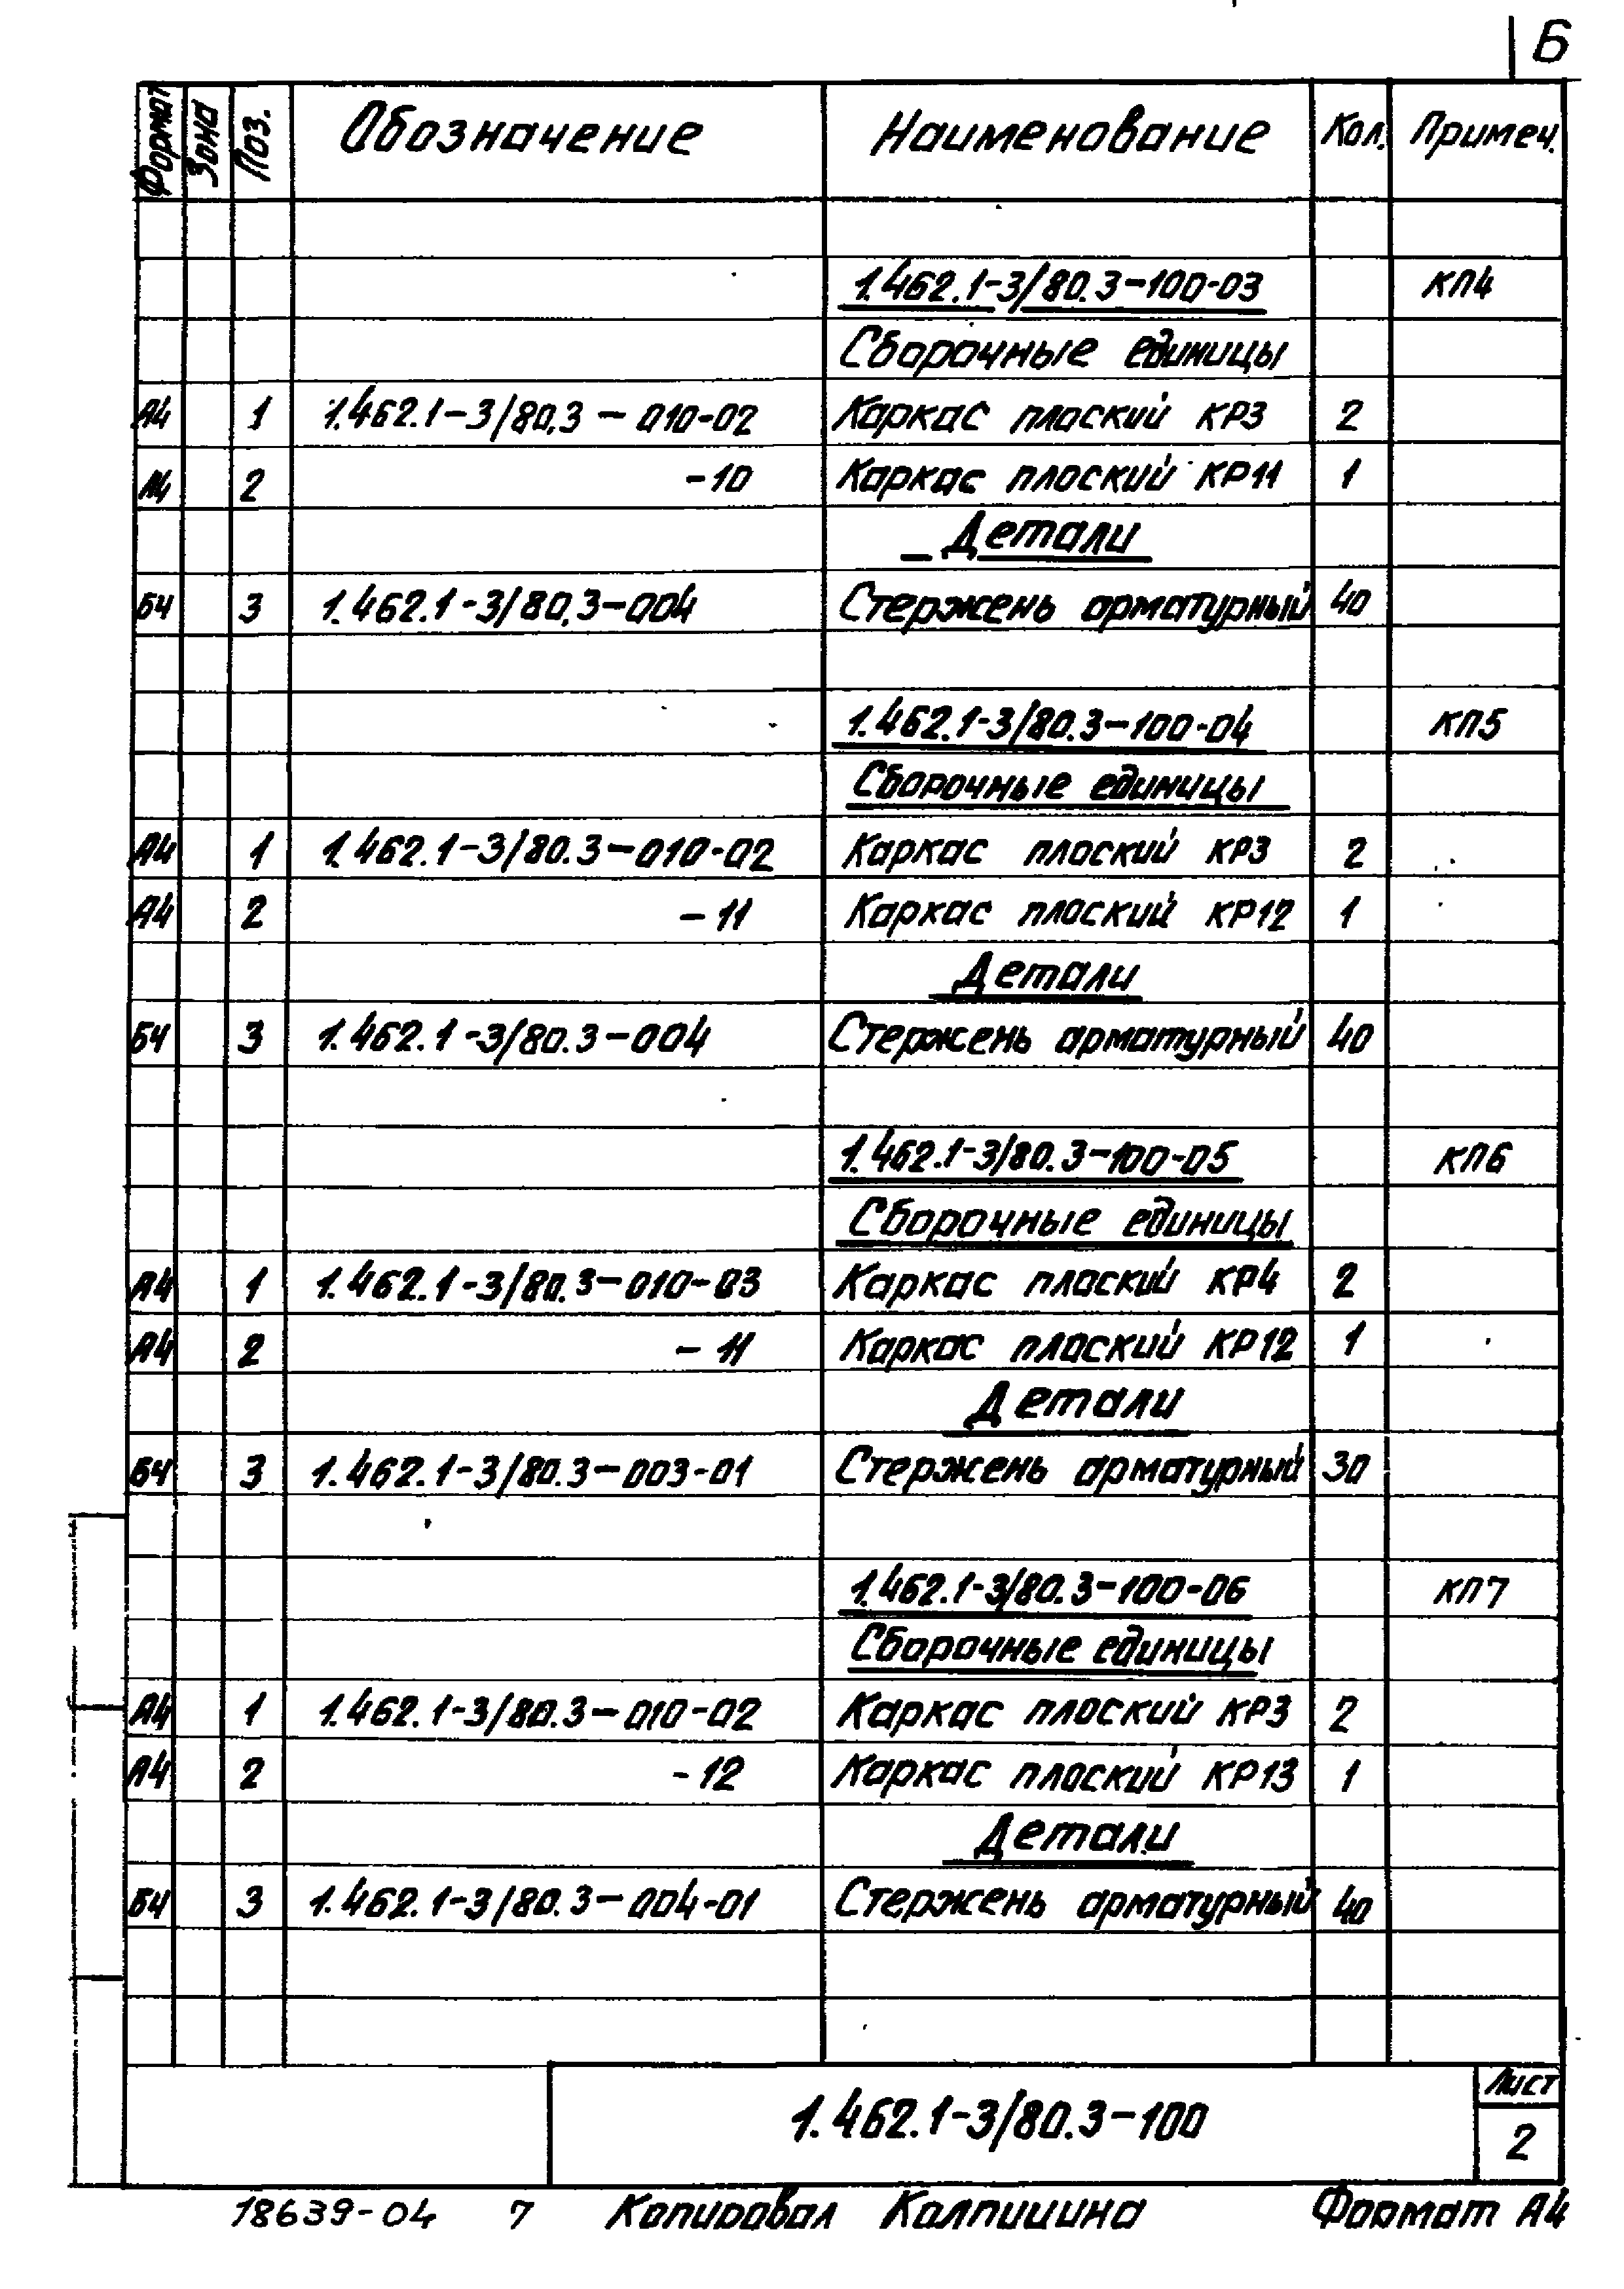 6
Формат Зона Поз. Обозначение Наименование Кол. Примеч.
1.462.1-3/80.3-100-03 КП4
Сборочные единицы
А4 1 1.462.1-3/80.3-010-02 Каркас плоский КР3 2
А4 2 -10 Каркас плоский КР11 1
Детали
БЧ 3 1.462.1-3/80.3-004 Стержень арматурный 40
1.462.1-3/80.3-100-04 КП5
Сборочные единицы
А4 1 1.462.1-3/80.3-010-02 Каркас плоский КР3 2
А4 2 -11 Каркас плоский КР12 1
Детали
БЧ 3 1.462.1-3/80.3-004 Стержень арматурный 40
1.462.1-3/80.3-100-05 КП6
Сборочные единицы
А4 1 1.462.1-3/80.3-010-03 Каркас плоский КР4 2
А4 2 -11 Каркас плоский КР12 1
Детали
БЧ 3 1.462.1-3/80.3-003-01 Стержень арматурный 30
1.462.1-3/80.3-100-06 КП7
Сборочные единицы
А4 1 1.462.1-3/80.3-010-02 Каркас плоский КР3 2
А4 2 -12 Каркас плоский КР13 1
Детали
БЧ 3 1.462.1-3/80.3-004-01 Стержень арматурный 40
1.462.1-3/80.3-100
Лист
2
18639-04 7 Копировал Колпишина Формат А4